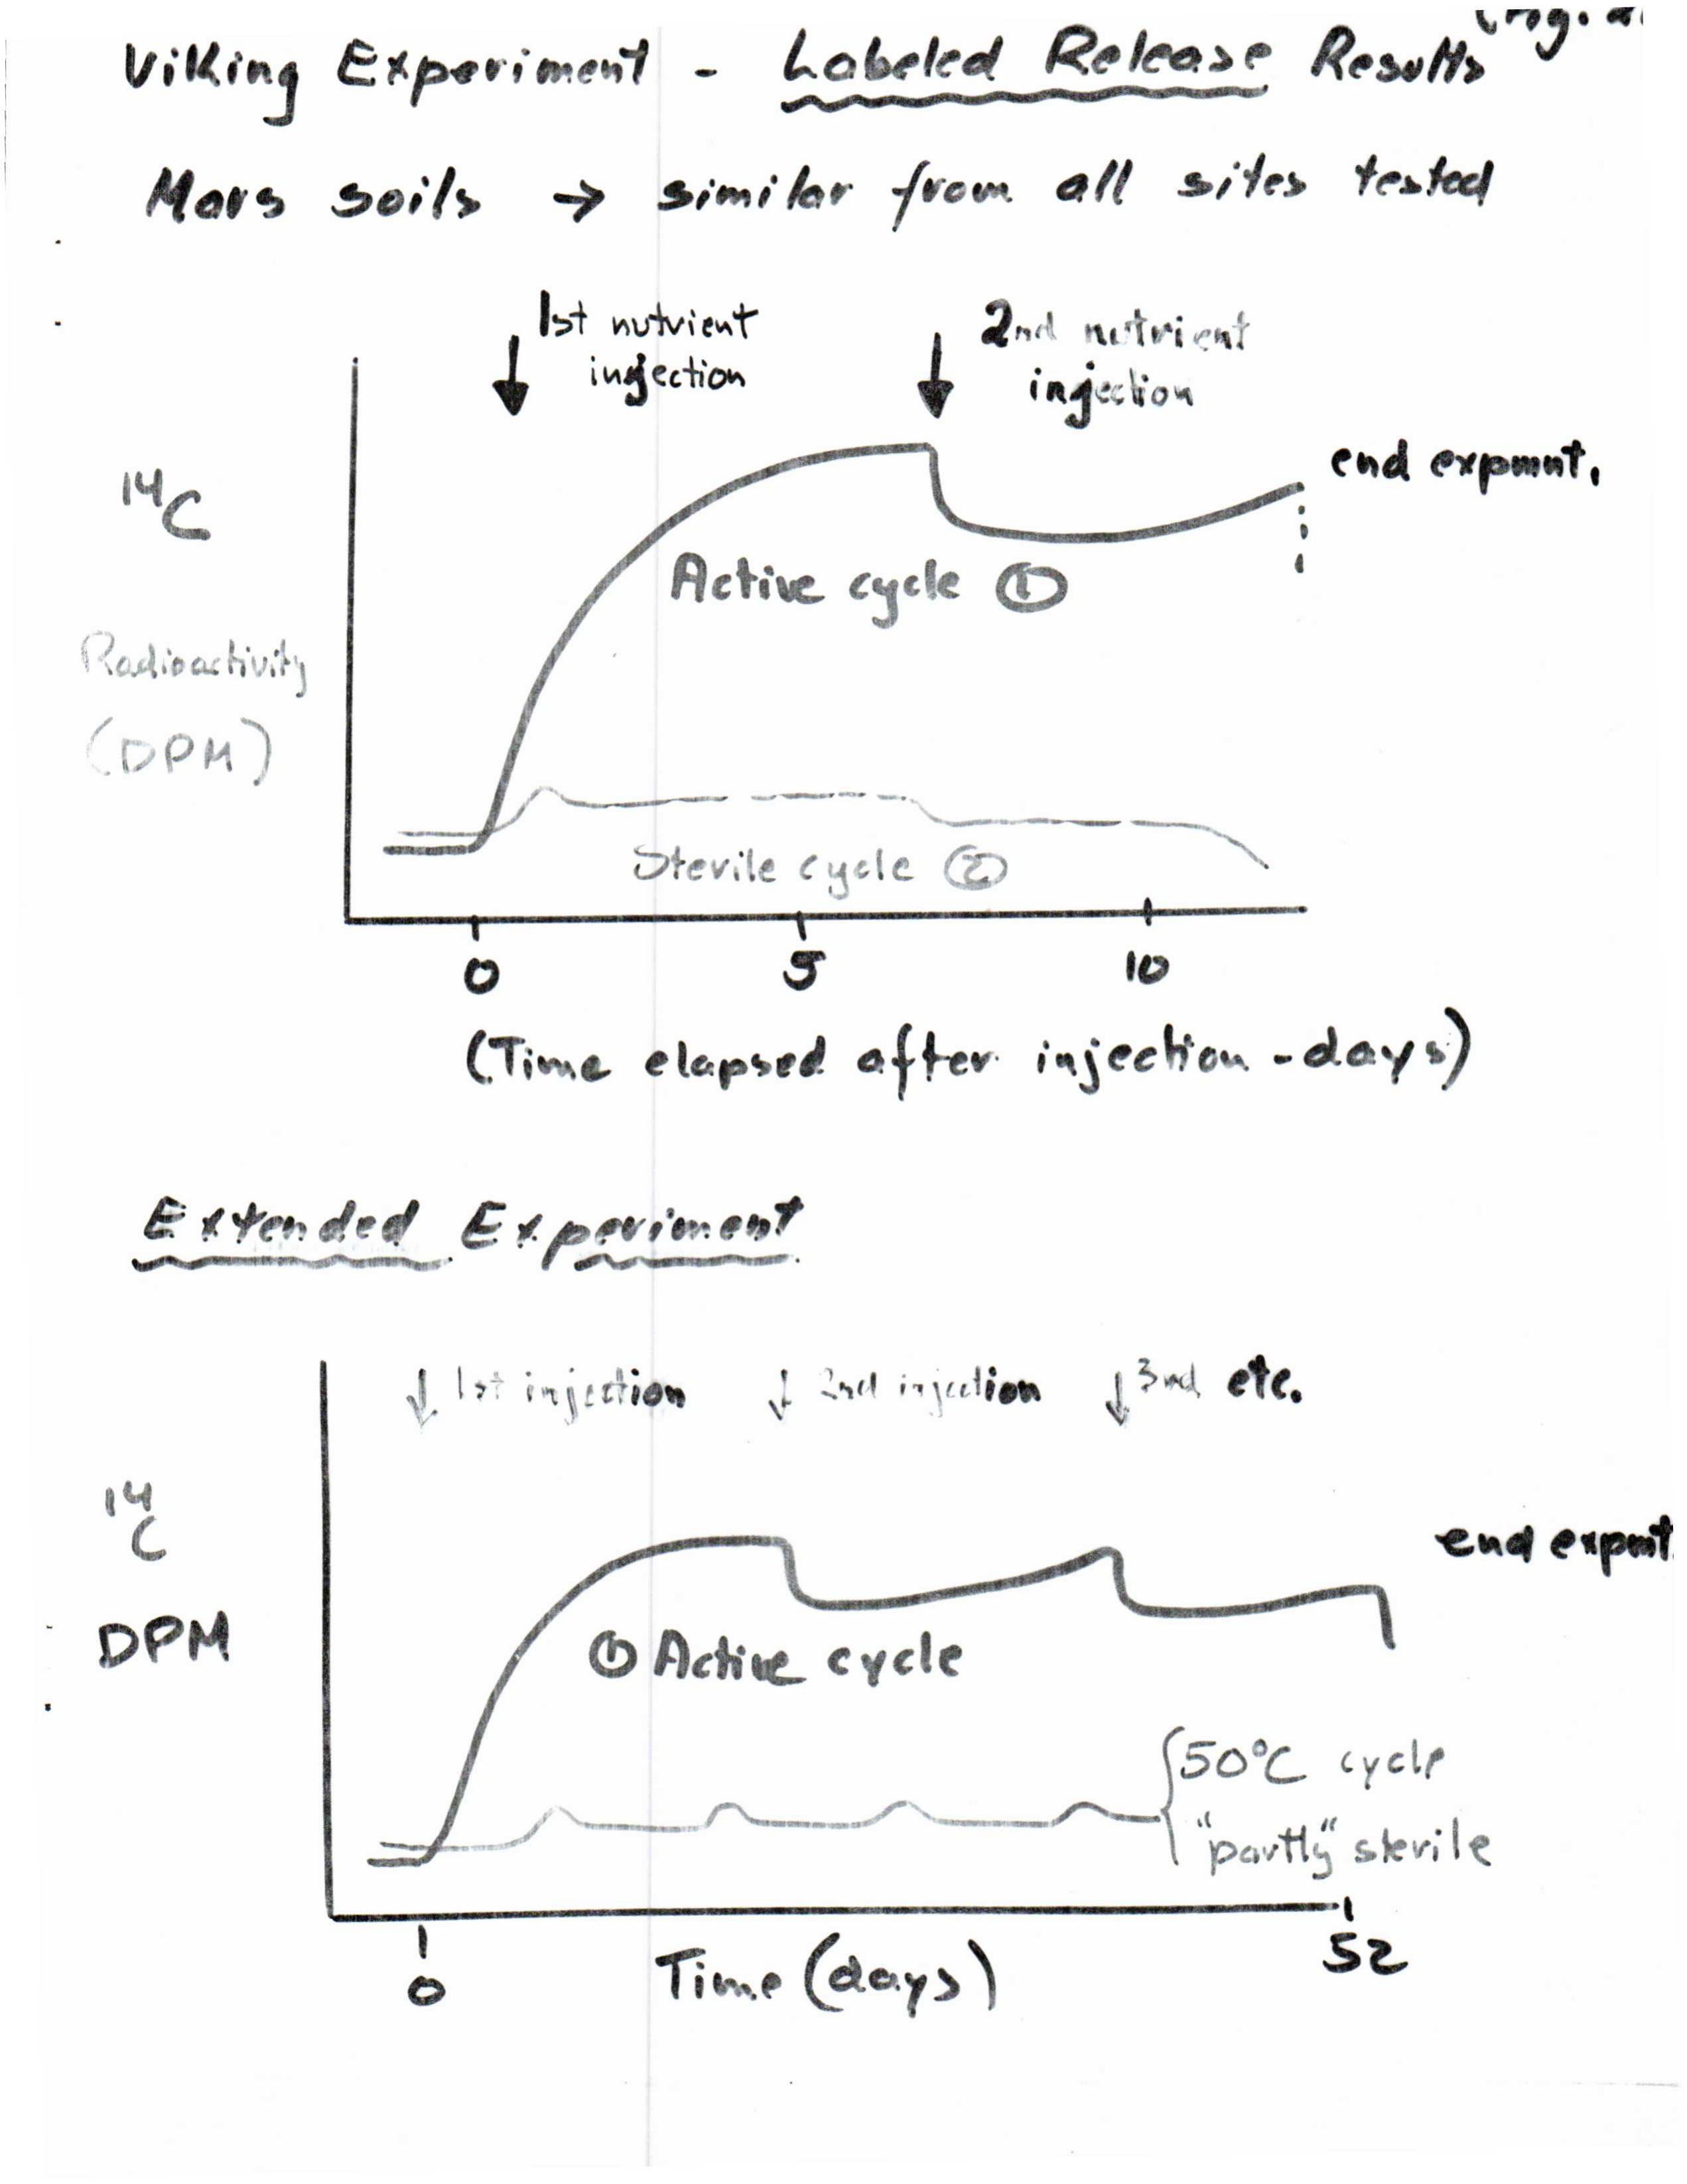 (Fig. 2
Viking Experiment - Labeled Release Results
Mars soils → similar from all sites tested
1st nutrient
injection
2nd nutrient
injection
end expmnt.
14C
Radioactivity
(DPM)
Active cycle ①
Sterile cycle ②
0 5 10
(Time elapsed after injection - days)
Extended Experiment
↓ 1st injection ↓ 2nd injection ↓ 3rd etc.
14C
DPM
end expmt.
① Active cycle
50°C cycle
"partly" sterile
0 52
Time (days)